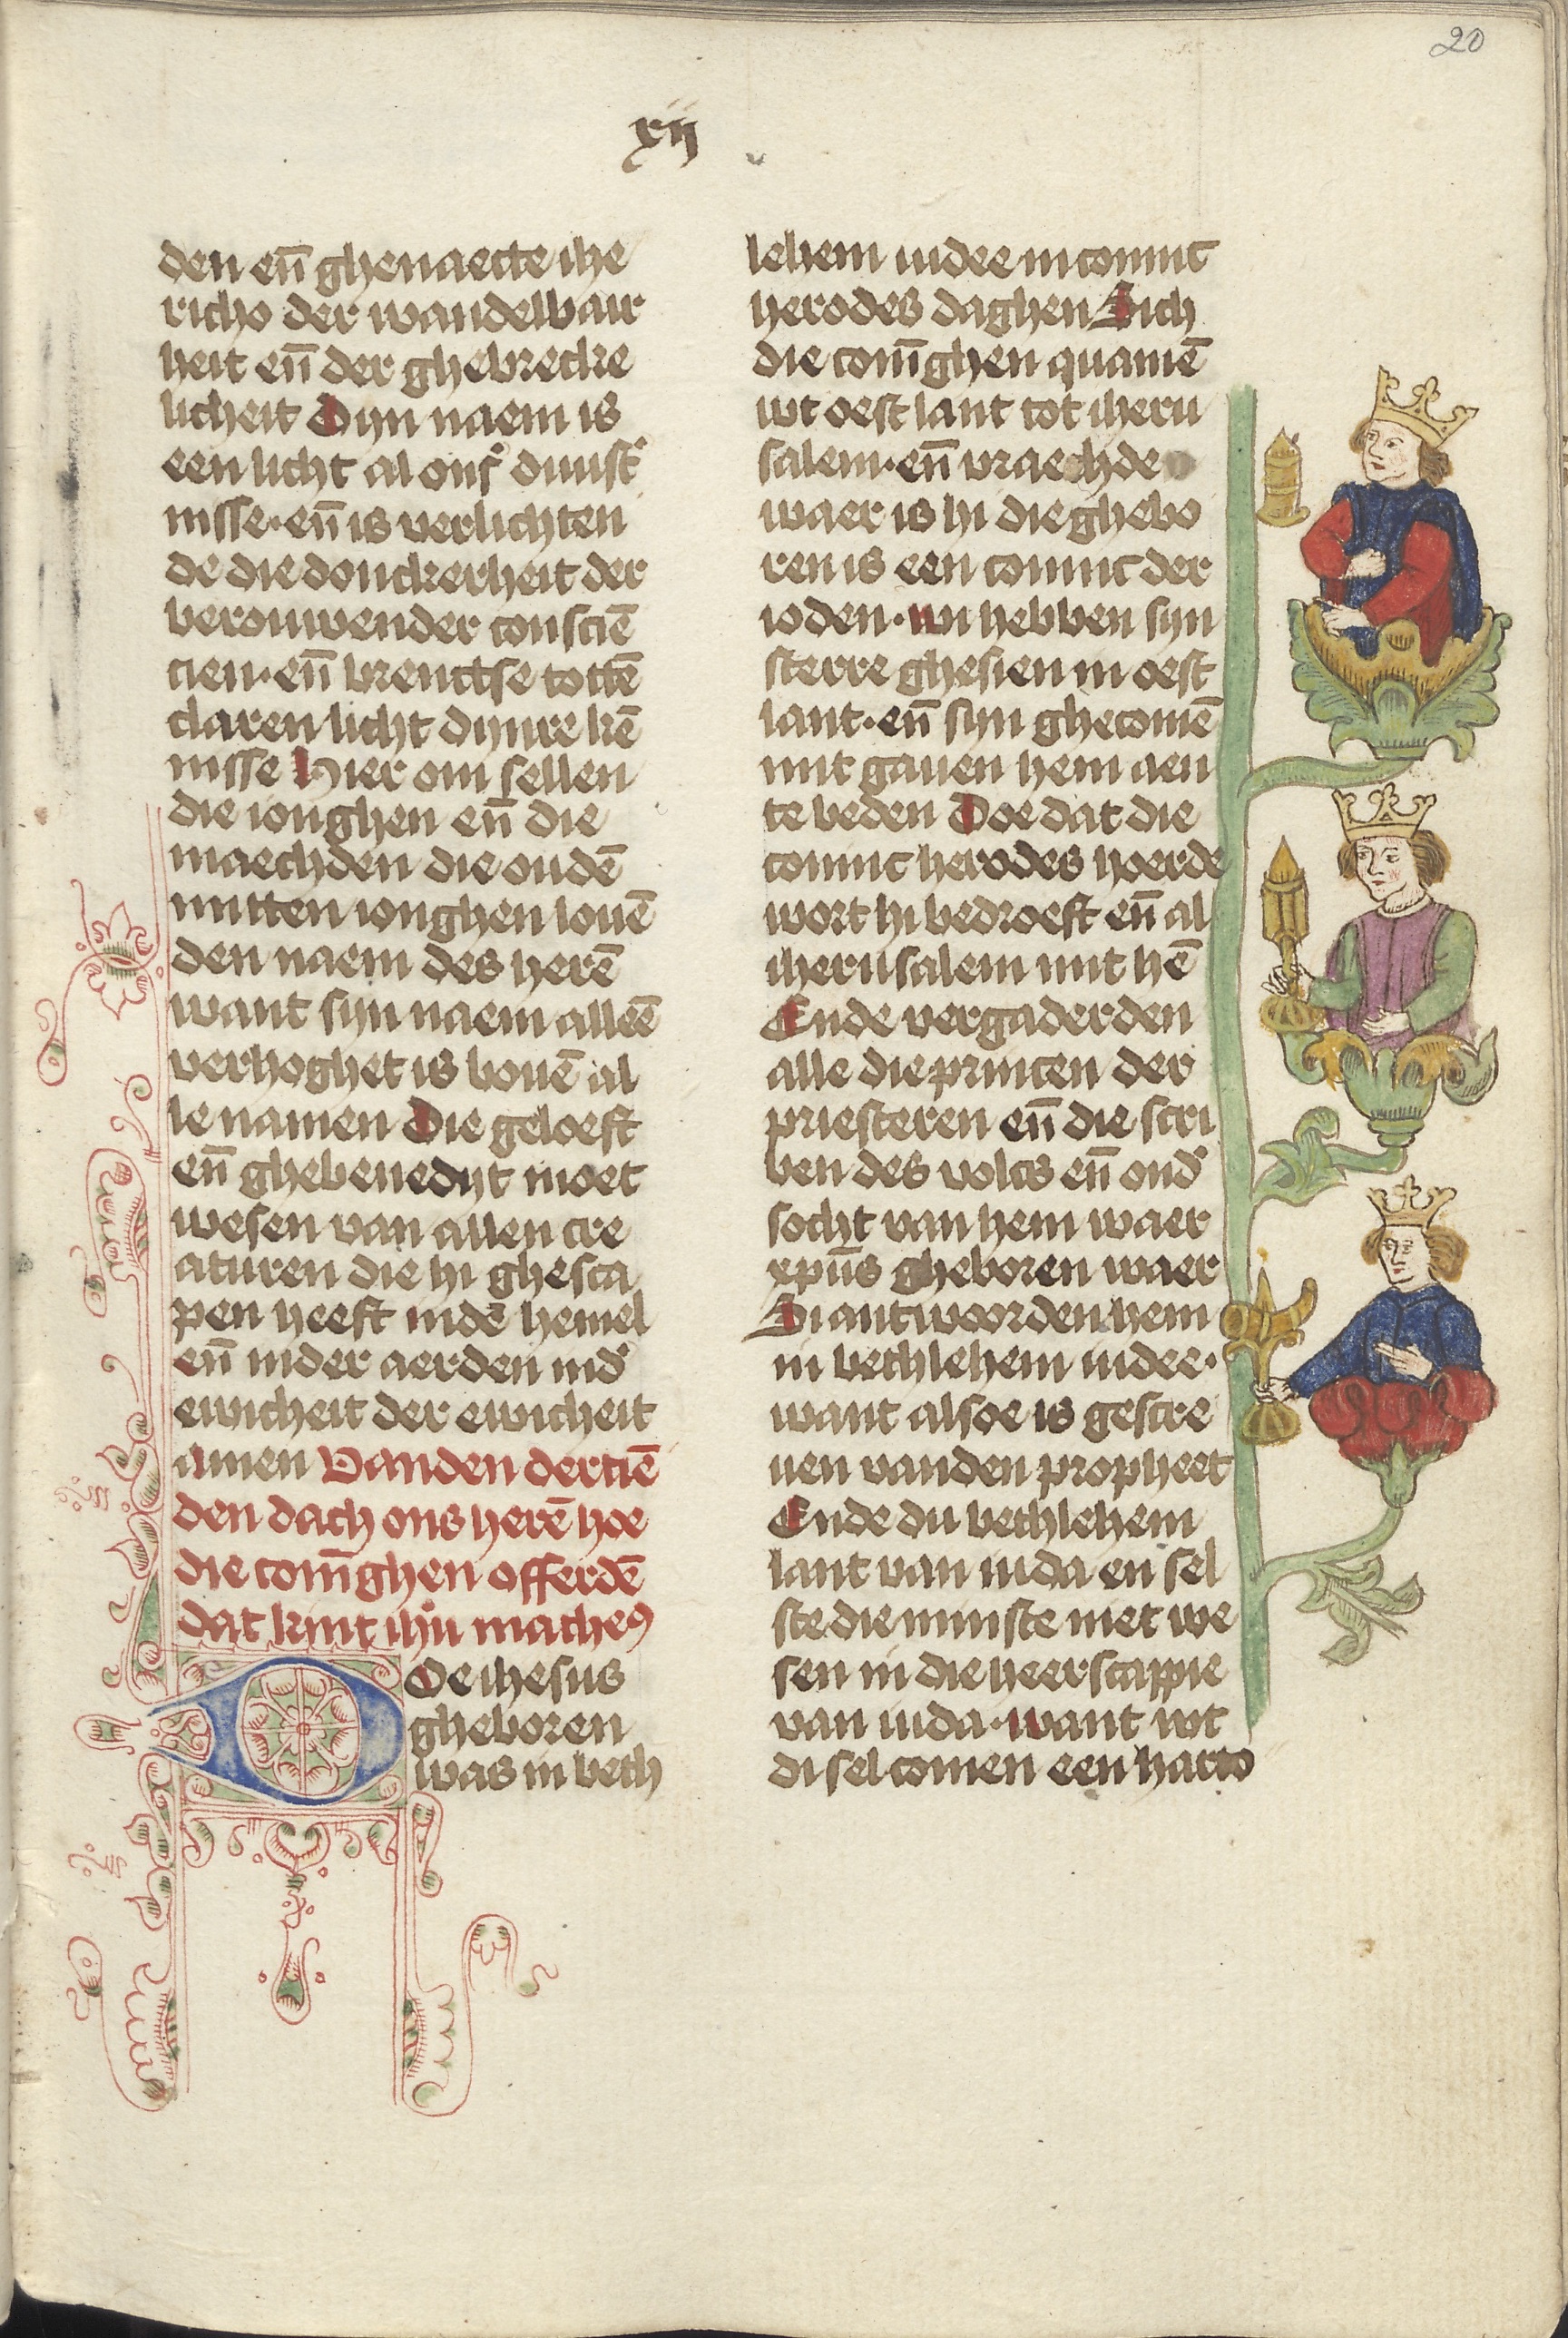 20
xij
den en̄ ghenaecte ihe
richo der wandelbair
heit en̄ der ghebrecke
licheit Dijn naem is
een licht al onsʼ duustʼ
nisse· en̄ is verlichten
de die donckerheit der
berouwender consciē
cien· en̄ brenctse tottē
claren licht dijnre kē
nisse Hier om sellen
die ionghen en̄ die
maechden die oudē
mitten ionghen louē
den naem des herē
want sijn naem alleē
verhoghet is bouē al
le namen Die geloeft
en̄ ghebenedijt moet
wesen van allen cre
aturen die hi ghesca
pen heeft indē hemel
en̄ inder aerden indʼ
ewicheit der ewicheit
amen Vanden dertiē
den dach ons herē hoe
die coni̅ghen offerdē
dat kint ihū matheꝰ
Doe ihesus
gheboren
was in beth
lehem iudee in coninc
herodes daghen Sich
die coni̅ghen quamē
wt oest lant tot iheru
salem· en̄ vraechde
waer is hi die ghebo
ren is een coninc der
ioden· wi hebben sijn
sterre ghesien in oest
lant· en̄ sijn ghecomē
mit gauen hem aen
te beden Doe dat die
coninc herodes hoerde
wort hi bedroeft en̄ al
iherusalem mit hē
Ende vergaderden
alle die princen der
priesteren en̄ die scri
ben des volcs en̄ ondʼ
socht van hem waer
xpūs gheboren waer
Si antwoorden hem
in bethlehem iudee·
want alsoe is gescre
uen vanden propheet
Ende du bethlehem
lant van iuda en sel
ste die minste niet we
sen in die heerscappie
van iuda· want wt
di sel comen een harto